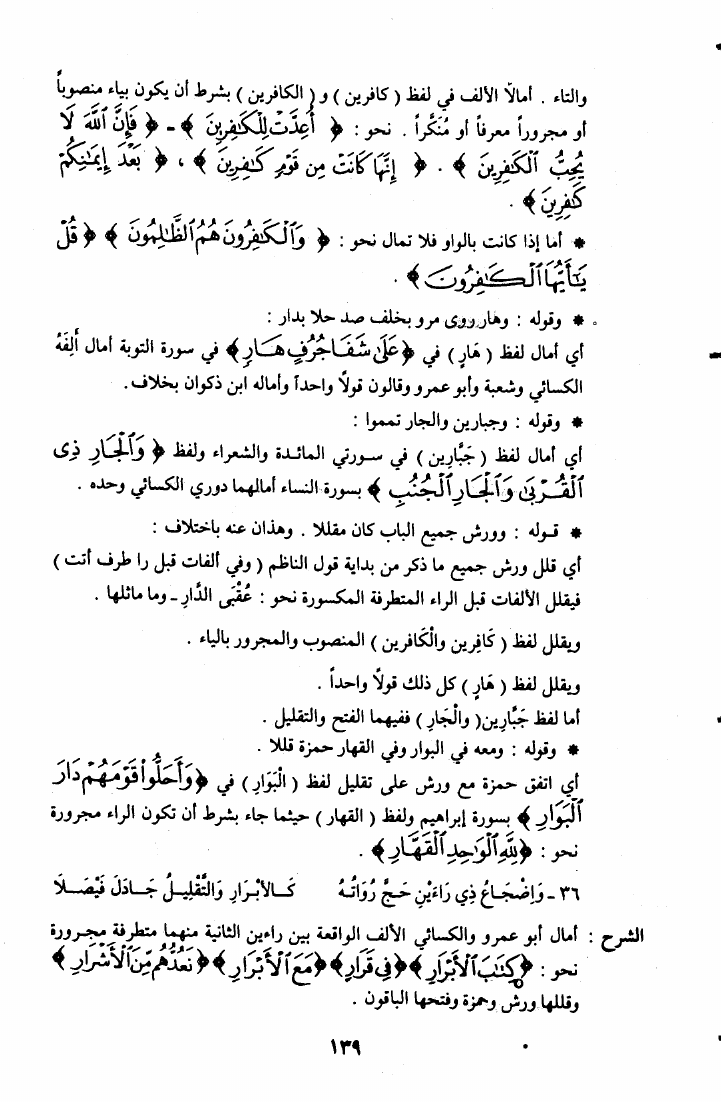 والتاء . أمالا الألف في لفظ ( كافرين ) و ( الكافرين ) بشرط أن يكون بياء منصوباً
أو مجروراً معرفاً أو مُنَكَّراً . نحو : ﴿ أُعِدَّتْ لِلْكَـٰفِرِينَ ﴾ - ﴿ فَإِنَّ ٱللَّهَ لَا
يُحِبُّ ٱلْكَـٰفِرِينَ ﴾ . ﴿ إِنَّهَا كَانَتْ مِن قَوْمٍ كَـٰفِرِينَ ﴾ ، ﴿ بَعْدَ إِيمَـٰنِكُمْ
كَـٰفِرِينَ ﴾ .
* أما إذا كانت بالواو فلا تمال نحو : ﴿ وَٱلْكَـٰفِرُونَ هُمُ ٱلظَّـٰلِمُونَ ﴾ ﴿ قُلْ
يَـٰٓأَيُّهَا ٱلْكَـٰفِرُونَ ﴾ .
* وقوله : وهار روى مرو بخلف صد حلا بدار :
أي أمال لفظ ( هَارٍ ) في ﴿ عَلَىٰ شَفَا جُرُفٍ هَارٍ ﴾ في سورة التوبة أمال ألِفَهُ
الكسائي وشعبة وأبو عمرو وقالون قولاً واحداً وأماله ابن ذكوان بخلاف.
* وقوله : وجبارين والجار تمموا :
أي أمال لفظ ( جَبَّارِين ) في سورتي المائدة والشعراء ولفظ ﴿ وَٱلْجَارِ ذِى
ٱلْقُرْبَىٰ وَٱلْجَارِ ٱلْجُنُبِ ﴾ بسورة النساء أمالهما دوري الكسائي وحده .
* قوله : وورش جميع الباب كان مقللا . وهذان عنه باختلاف :
أي قلل ورش جميع ما ذكر من بداية قول الناظم ( وفي ألفات قبل را طرف أتت )
فيقلل الألفات قبل الراء المتطرفة المكسورة نحو : عُقْبَى الدَّارِ - وما ماثلها .
ويقلل لفظ ( كَافِرين والْكَافرين ) المنصوب والمجرور بالياء .
ويقلل لفظ ( هَارٍ ) كل ذلك قولاً واحداً .
أما لفظ جَبَّارِين( والْجَارِ ) ففيهما الفتح والتقليل .
* وقوله : ومعه في البوار وفي القهار حمزة قللا .
أي اتفق حمزة مع ورش على تقليل لفظ ( الْبَوَارِ ) في ﴿ وَأَحَلُّوا۟ قَوْمَهُمْ دَارَ
ٱلْبَوَارِ ﴾ بسورة إبراهيم ولفظ ( القهار ) حيثما جاء بشرط أن تكون الراء مجرورة
نحو : ﴿ لِلَّهِ ٱلْوَٰحِدِ ٱلْقَهَّارِ ﴾ .
٣٦ - وَإِضْجَاعُ ذِي رَاءَيْنِ حَجَّ رُوَاتُهُ كَالأَبْرَارِ وَالتَّقْلِيلُ جَادَلَ فَيْصَلَا
الشرح : أمال أبو عمرو والكسائي الألف الواقعة بين راءين الثانية منهما متطرفة مجرورة
نحو : ﴿ كِتَـٰبَ ٱلْأَبْرَارِ ﴾ ﴿ فِى قَرَارٍ ﴾ ﴿ مَعَ ٱلْأَبْرَارِ ﴾ ﴿ نَعُدُّهُم مِّنَ ٱلْأَشْرَارِ ﴾
وقللها ورش وحمزة وفتحها الباقون .
١٣٩